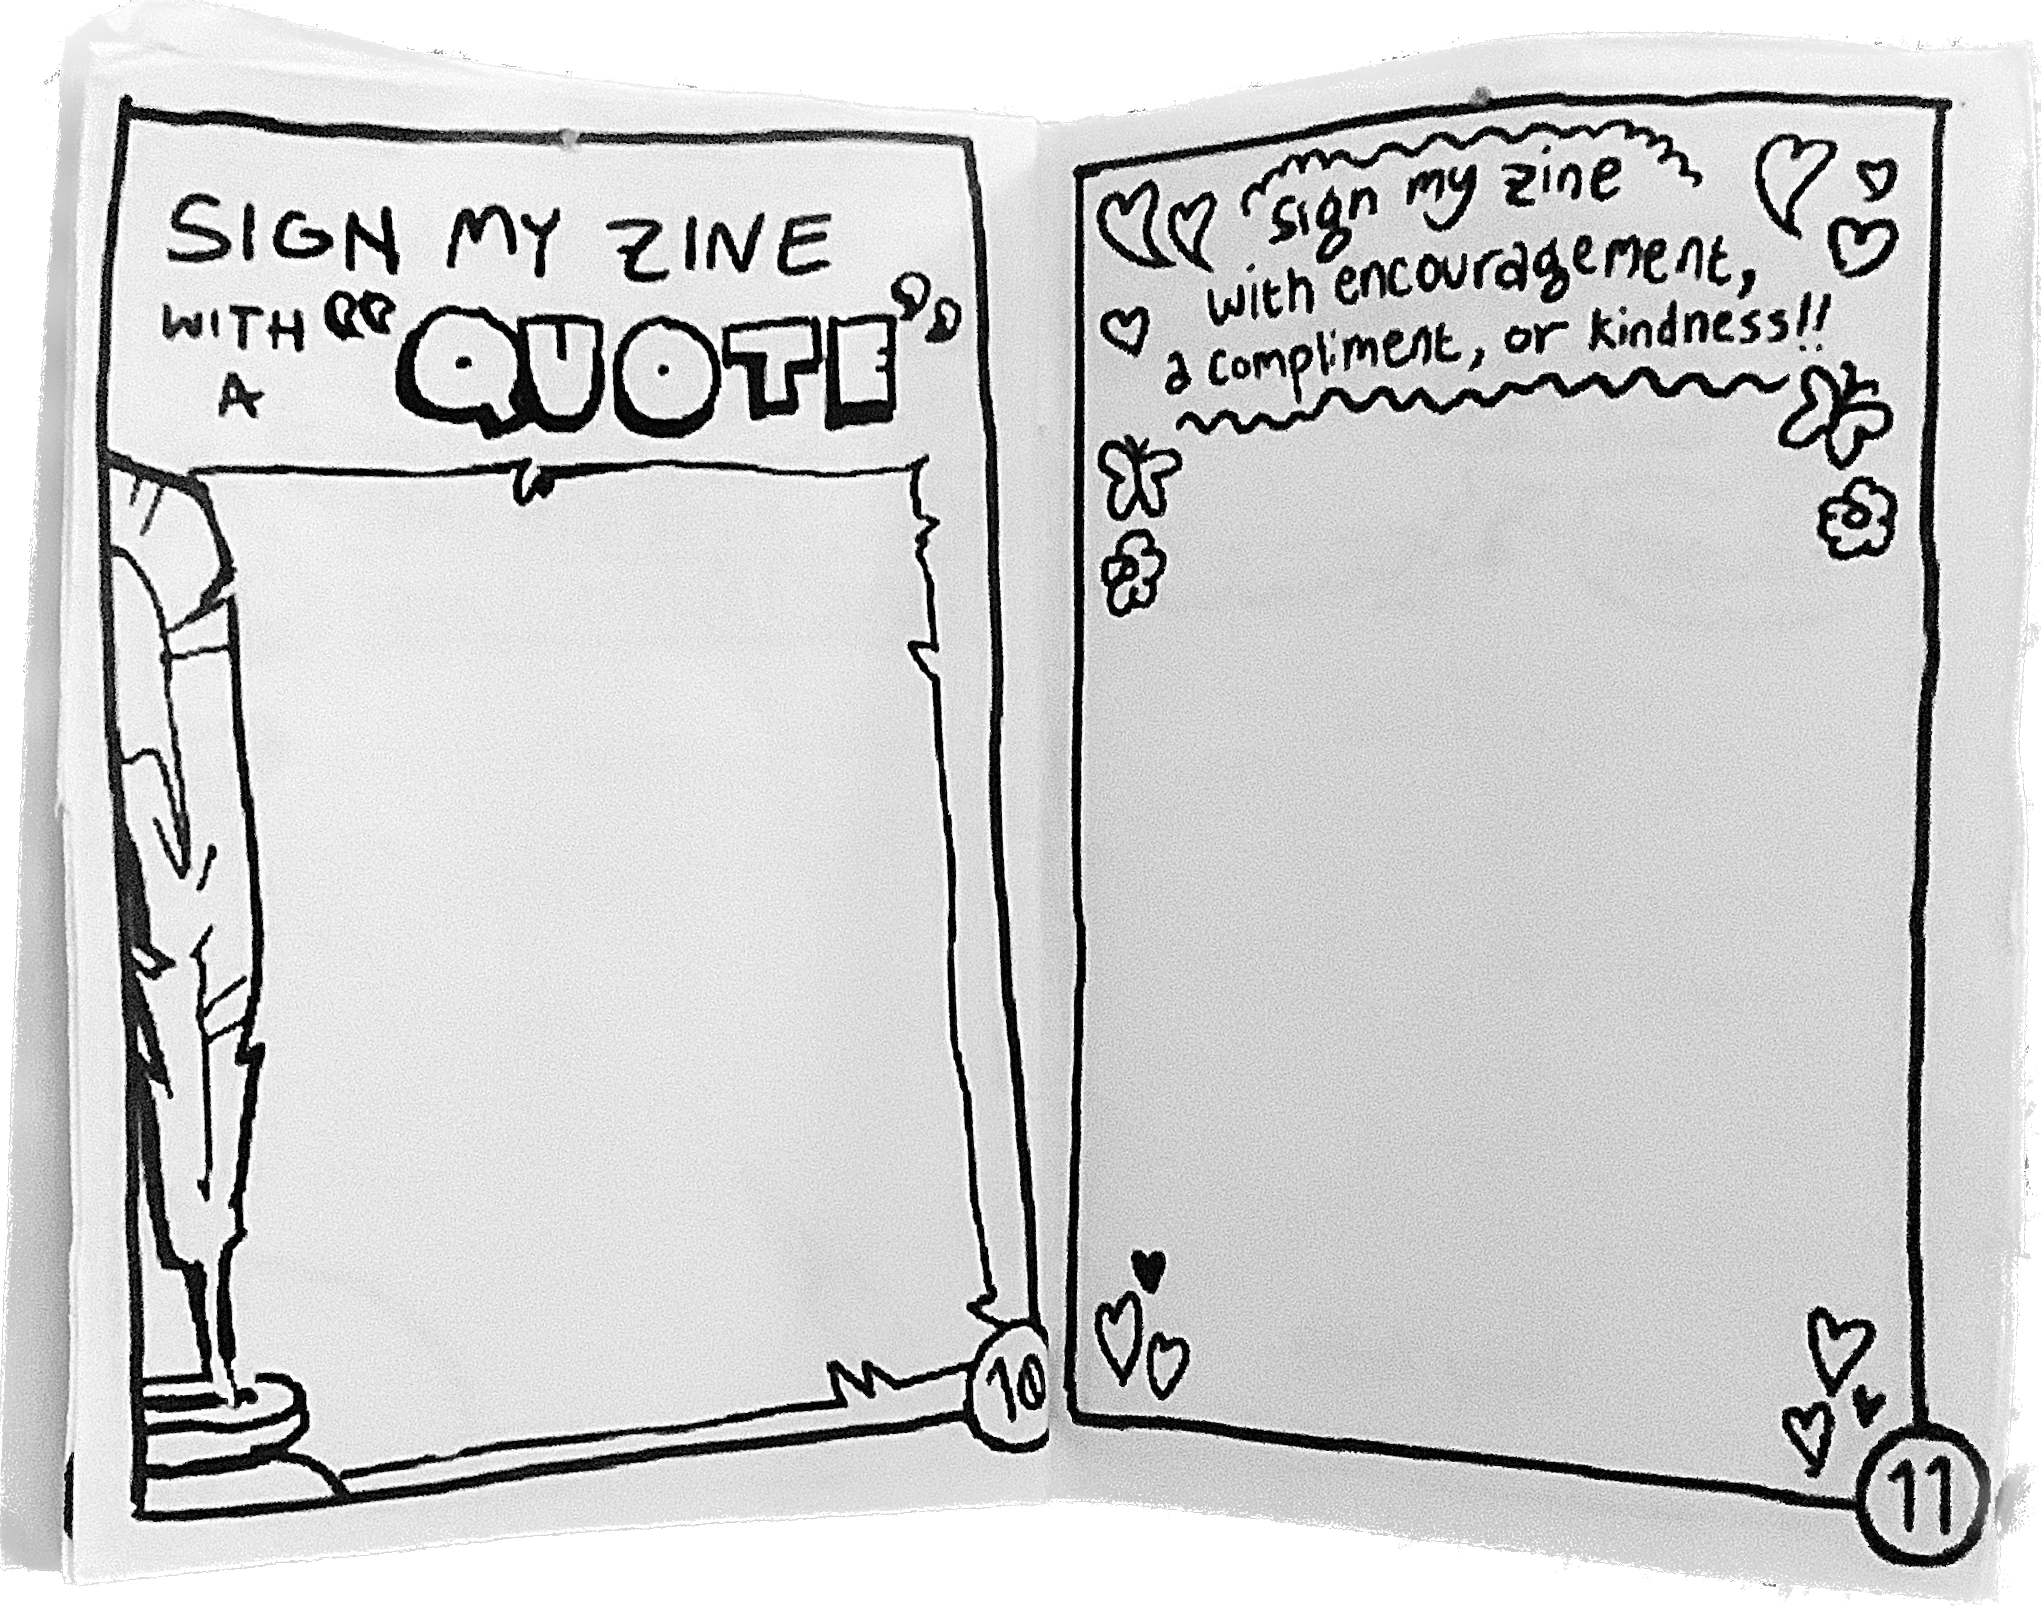 SIGN MY ZINE
WITH "QUOTE"
A
10
sign my zine
with encouragement,
a compliment, or kindness!!
11